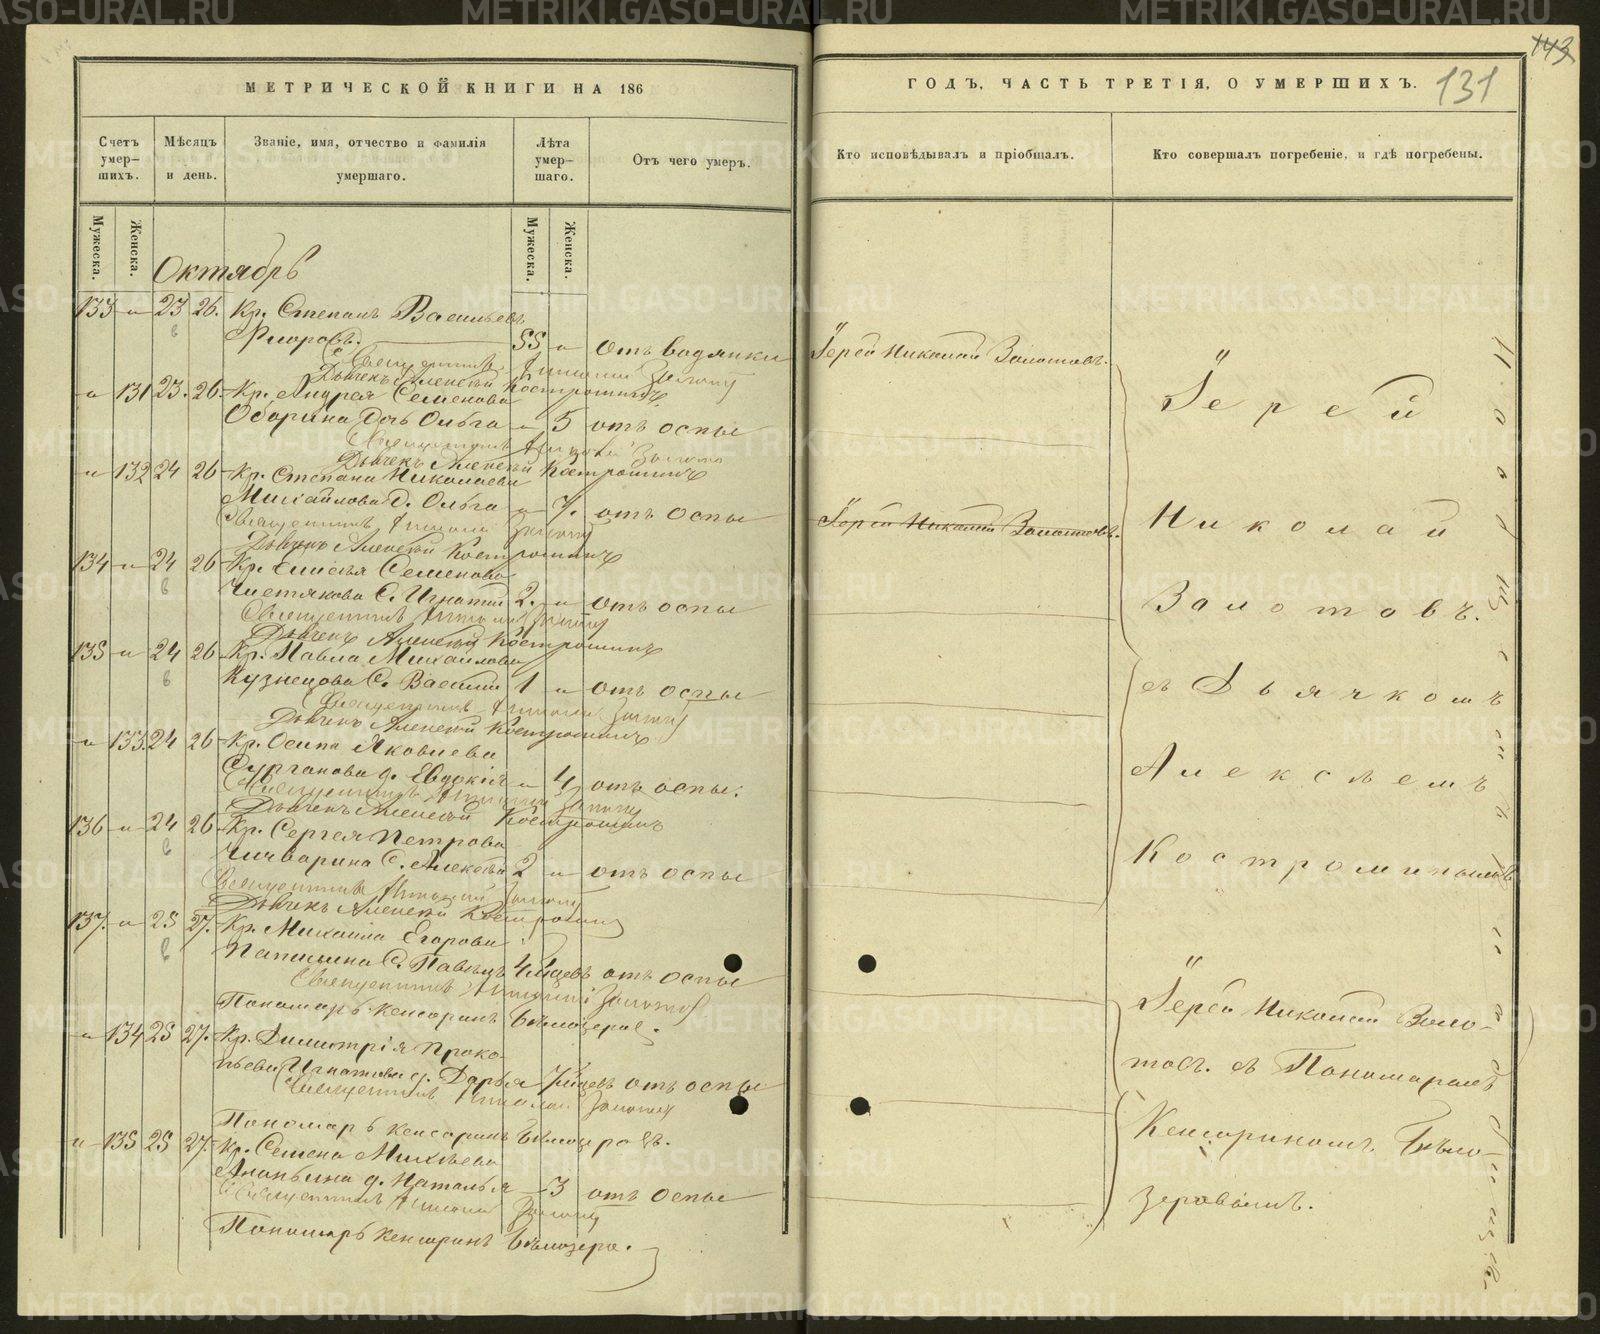 МЕТРИЧЕСКОЙ КНИГИ НА 186
Счетъ умер-шихъ.
Мѣсяцъ и день.
Званіе, имя, отчество и фамилія умершаго.
Лѣта умер-шаго.
Отъ чего умеръ.
Мужеска.
Женска.
Мужеска.
Женска.
Октябрь
133 23 26. Кр. Степанъ Васильевъ
55 отъ водянки
Священникъ Николай Золотовъ
Дьячекъ Алексѣй Костроминъ
131 23. 26. Кр. Андрея Семенова
Оборина дочь Ольга 5 отъ оспы
Священникъ Николай Золотовъ
Дьячекъ Алексѣй Костроминъ
132 24 26 Кр. Степана Николаева
Михайлова д. Ольга 7. отъ оспы
Священникъ Николай Золотовъ
Дьячекъ Алексѣй Костроминъ
134 24 26 Кр. Елисѣя Семенова
Чистякова с. Игнатій 2. отъ оспы
Священникъ Николай Золотовъ
Дьячекъ Алексѣй Костроминъ
135 24 26 Кр. Павла Михайлова
Кузнецова с. Василій 1 отъ оспы
Священникъ Николай Золотовъ
Дьячекъ Алексѣй Костроминъ
133. 24 26 Кр. Осипа Яковлева
Сурганова д. Евдокія 4 отъ оспы.
Священникъ Николай Золотовъ
Дьячекъ Алексѣй Костроминъ
136 24 26 Кр. Сергея Петрова
Чичварина с. Алексѣй 2 отъ оспы
Священникъ Николай Золотовъ
Дьячекъ Алексѣй Костроминъ
137. 25 27. Кр. Михаила Егорова
с. Павелъ 4 мѣсев отъ оспы
Священникъ Николай Золотовъ
Пономарь Кенсоринъ Бѣлозеровъ.
134 25 27. Кр. Димитрія Проко-
пьева Игнатьева д. Дарья 7 мѣсев отъ оспы
Священникъ Николай Золотовъ
Пономарь Кенсоринъ Бѣлозеровъ.
135 25 27. Кр. Семена Михѣева
Ананьина д. Наталья 3 отъ оспы
Священникъ Николай Золотовъ
Пономарь Кенсоринъ Бѣлозеро.
143
131
ГОДЪ, ЧАСТЬ ТРЕТІЯ, О УМЕРШИХЪ.
Кто исповѣдывалъ и пріобщалъ.
Кто совершалъ погребеніе, и гдѣ погребены.
Іерей Николай Золотовъ.
Іерей Николай Золотовъ.
Іерей
Николай
Золотовъ.
съ Дьячкомъ
Алексѣемъ
Костроминымъ
Іерей Николай Золо-
товъ. съ Пономаремъ
Кенсориномъ Бѣло-
зеровымъ.
METRIKI.GASO-URAL.RU